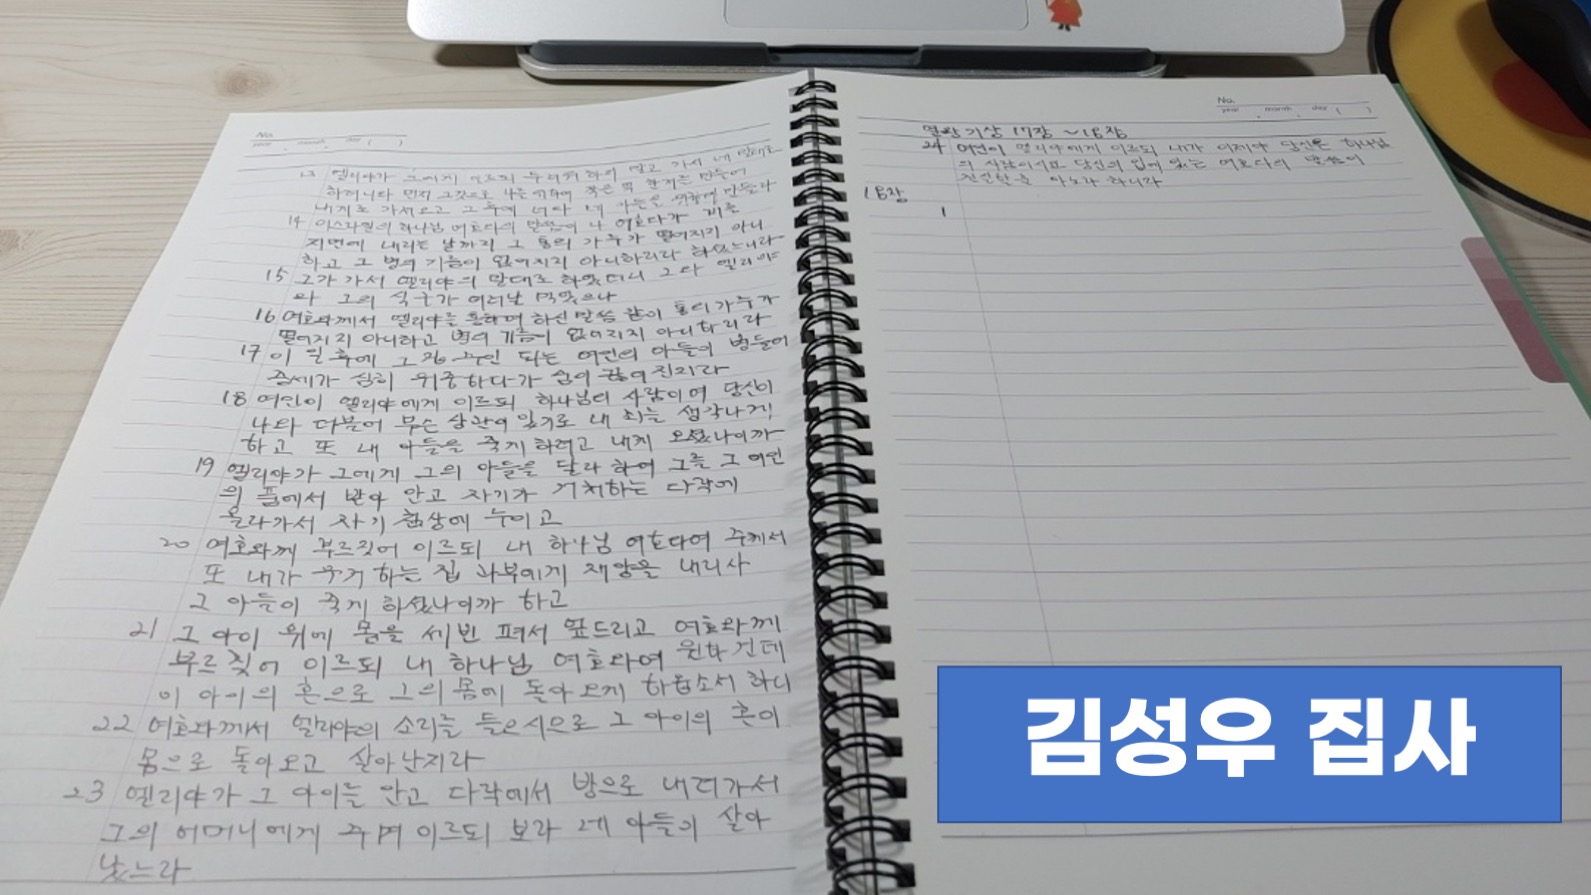 No.
year . month . day ( )
13 엘리야가 그에게 이르되 두려워하지 말고 가서 네 말대로
하려니와 먼저 그것으로 나를 위하여 작은 떡 한개를 만들어
내게로 가져오고 그 후에 너와 네 아들을 위하여 만들라
14 이스라엘의 하나님 여호와의 말씀이 나 여호와가 비를
지면에 내리는 날까지 그 통의 가루가 떨어지지 아니
하고 그 병의 기름이 없어지지 아니하리라 하셨느니라
15 그가 가서 엘리야의 말대로 하였더니 그와 엘리야
와 그의 식구가 여러날 먹었으나
16 여호와께서 엘리야를 통하여 하신 말씀 같이 통의 가루가
떨어지지 아니하고 병의 기름이 없어지지 아니하리라
17 이 일 후에 그 집 주인 되는 여인의 아들이 병들어
증세가 심히 위중하다가 숨이 끊어진지라
18 여인이 엘리야에게 이르되 하나님의 사람이여 당신이
나와 더불어 무슨 상관이 있기로 내 죄를 생각나게
하고 또 내 아들을 죽게 하려고 내게 오셨나이까
19 엘리야가 그에게 그의 아들을 달라 하여 그를 그 여인
의 품에서 받아 안고 자기가 거처하는 다락에
올라가서 자기 침상에 누이고
20 여호와께 부르짖어 이르되 내 하나님 여호와여 주께서
또 내가 우거하는 집 과부에게 재앙을 내리사
그 아들이 죽게 하셨나이까 하고
21 그 아이 위에 몸을 세번 펴서 엎드리고 여호와께
부르짖어 이르되 내 하나님 여호와여 원하건데
이 아이의 혼으로 그의 몸에 돌아오게 하옵소서 하니
22 여호와께서 엘리야의 소리를 들으시으로 그 아이의 혼이
몸으로 돌아오고 살아난지라
23 엘리야가 그 아이를 안고 다락에서 방으로 내려가서
그의 어머니에게 주며 이르되 보라 네 아들이 살아
났느라
No.
year . month . day ( )
열왕기상 17장 ~18장
24 여인이 엘리야에게 이르되 내가 이제야 당신은 하나님
의 사람이시요 당신의 입에 있는 여호와의 말씀이
진실함을 아노라 하니라
18장
1
김성우 집사